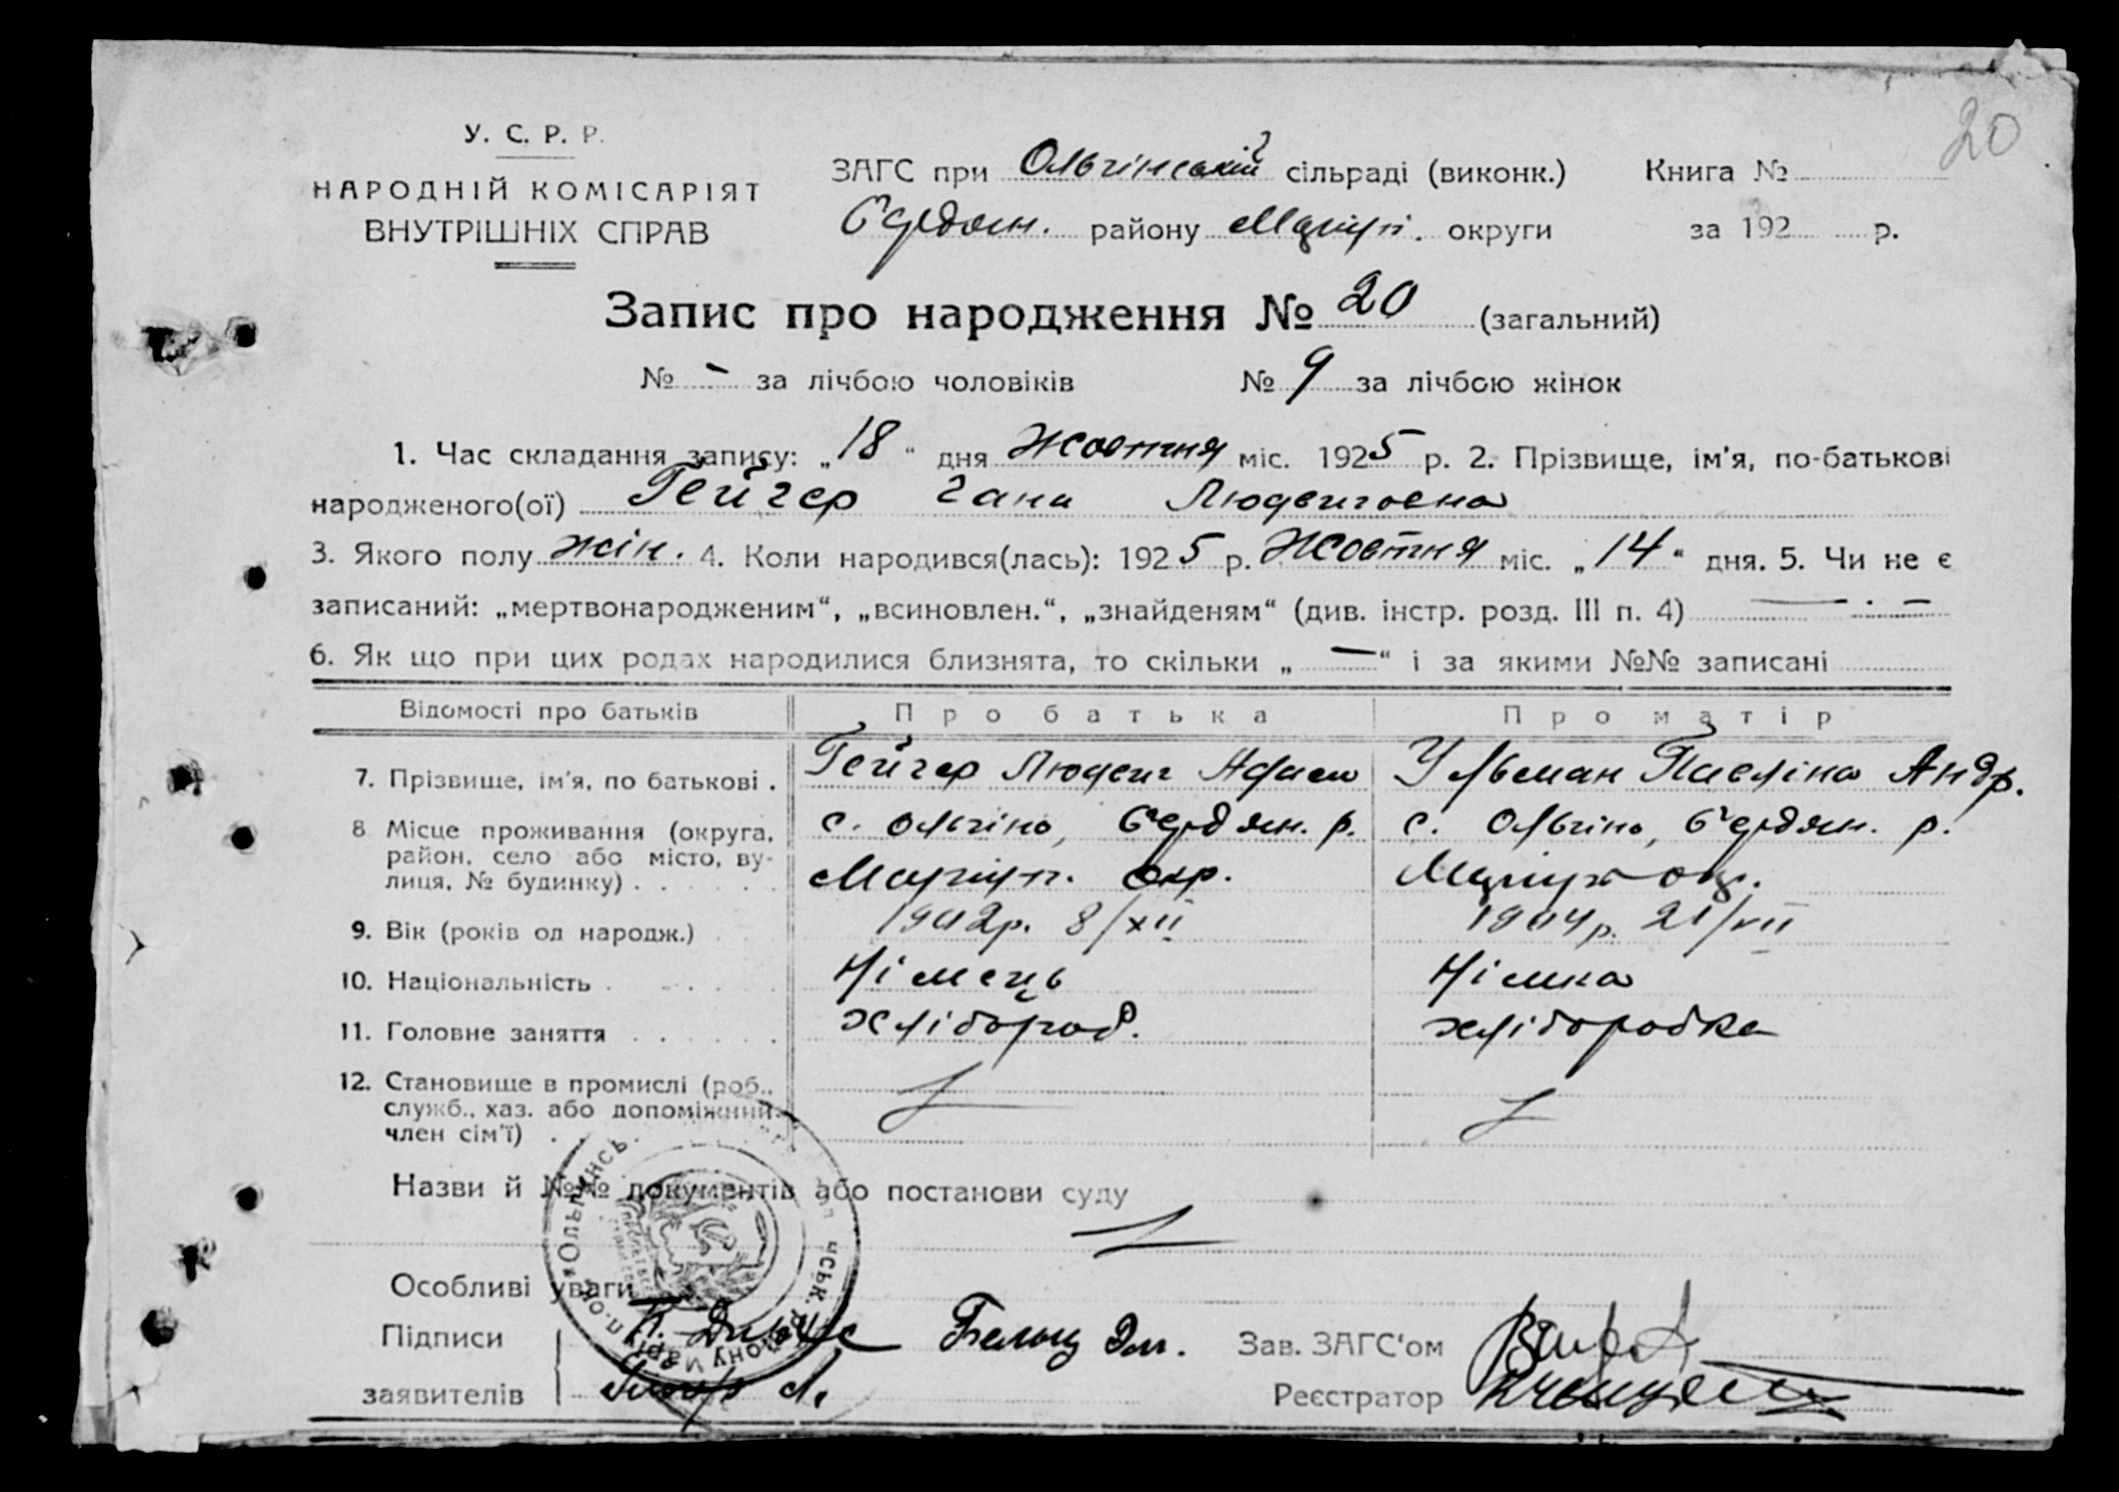 20
У. С. Р. Р.
НАРОДНІЙ КОМІСАРІЯТ
ВНУТРІШНІХ СПРАВ
ЗАГС при Ольгінській сільраді (виконк.) Книга №
Бердян. району Маріуп. округи за 192 р.
Запис про народження № 20 (загальний)
№ - за лічбою чоловіків № 9 за лічбою жінок
1. Час складання запису: „18" дня Жовтня міс. 1925 р. 2. Прізвище, ім'я, по-батькові
народженого(ої) Гейгер Гана Людвиговна
3. Якого полу жін. 4. Коли народився(лась): 1925 р. Жовтня міс. „14" дня. 5. Чи не є
записаний: „мертвонародженим", „всиновлен.", „знайденям" (див. інстр. розд. III п. 4) — · —
6. Як що при цих родах народилися близнята, то скільки „ — " і за якими №№ записані
Відомості про батьків Про батька Про матір
7. Прізвище, ім'я, по батькові . Гейгер Людвиг Адам Ульман Павліна Андр.
8 Місце проживання (округа, с. Ольгіно, Бердян. р. с. Ольгіно, Бердян. р.
район, село або місто, ву-
лиця, № будинку) . . . . . . Маріуп. окр. Маріуп окр.
9. Вік (років од народж.) 1902р. 8/XII 1904р. 21/VII
10. Національність . Німець Німка
11. Головне заняття . . . . . . хлібороб. хліборобка
12. Становище в промислі (роб.,
служб., хаз. або допоміжний
член сім'ї) . .
Назви й №№ документів або постанови суду
Особливі уваги —
Підписи Зав. ЗАГС'ом
заявителів Реєстратор
Ольгинсь